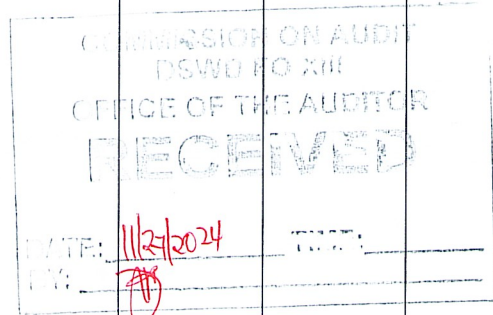 COMMISSION ON AUDIT
DSWD FO XIII
OFFICE OF THE AUDITOR
RECEIVED
DATE: 11/27/2024 TIME:
BY: